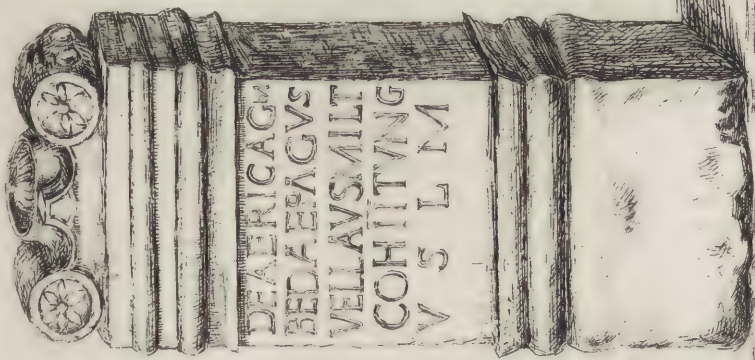 DEAERICAGM
BEDAEPAGVS
VELLAVSMILT
COHIITVNG
V S L M